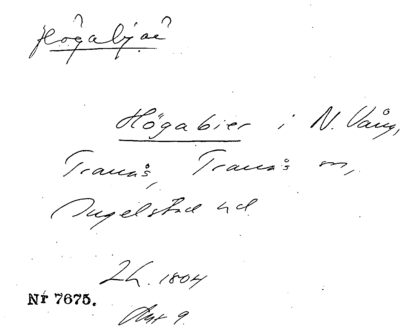 Högabjär
Högabier i N. Vång,
Tranås, Tranås sn,
Ingelstad hd.
Lh. 1804
Nr 7675.
Akt 9.